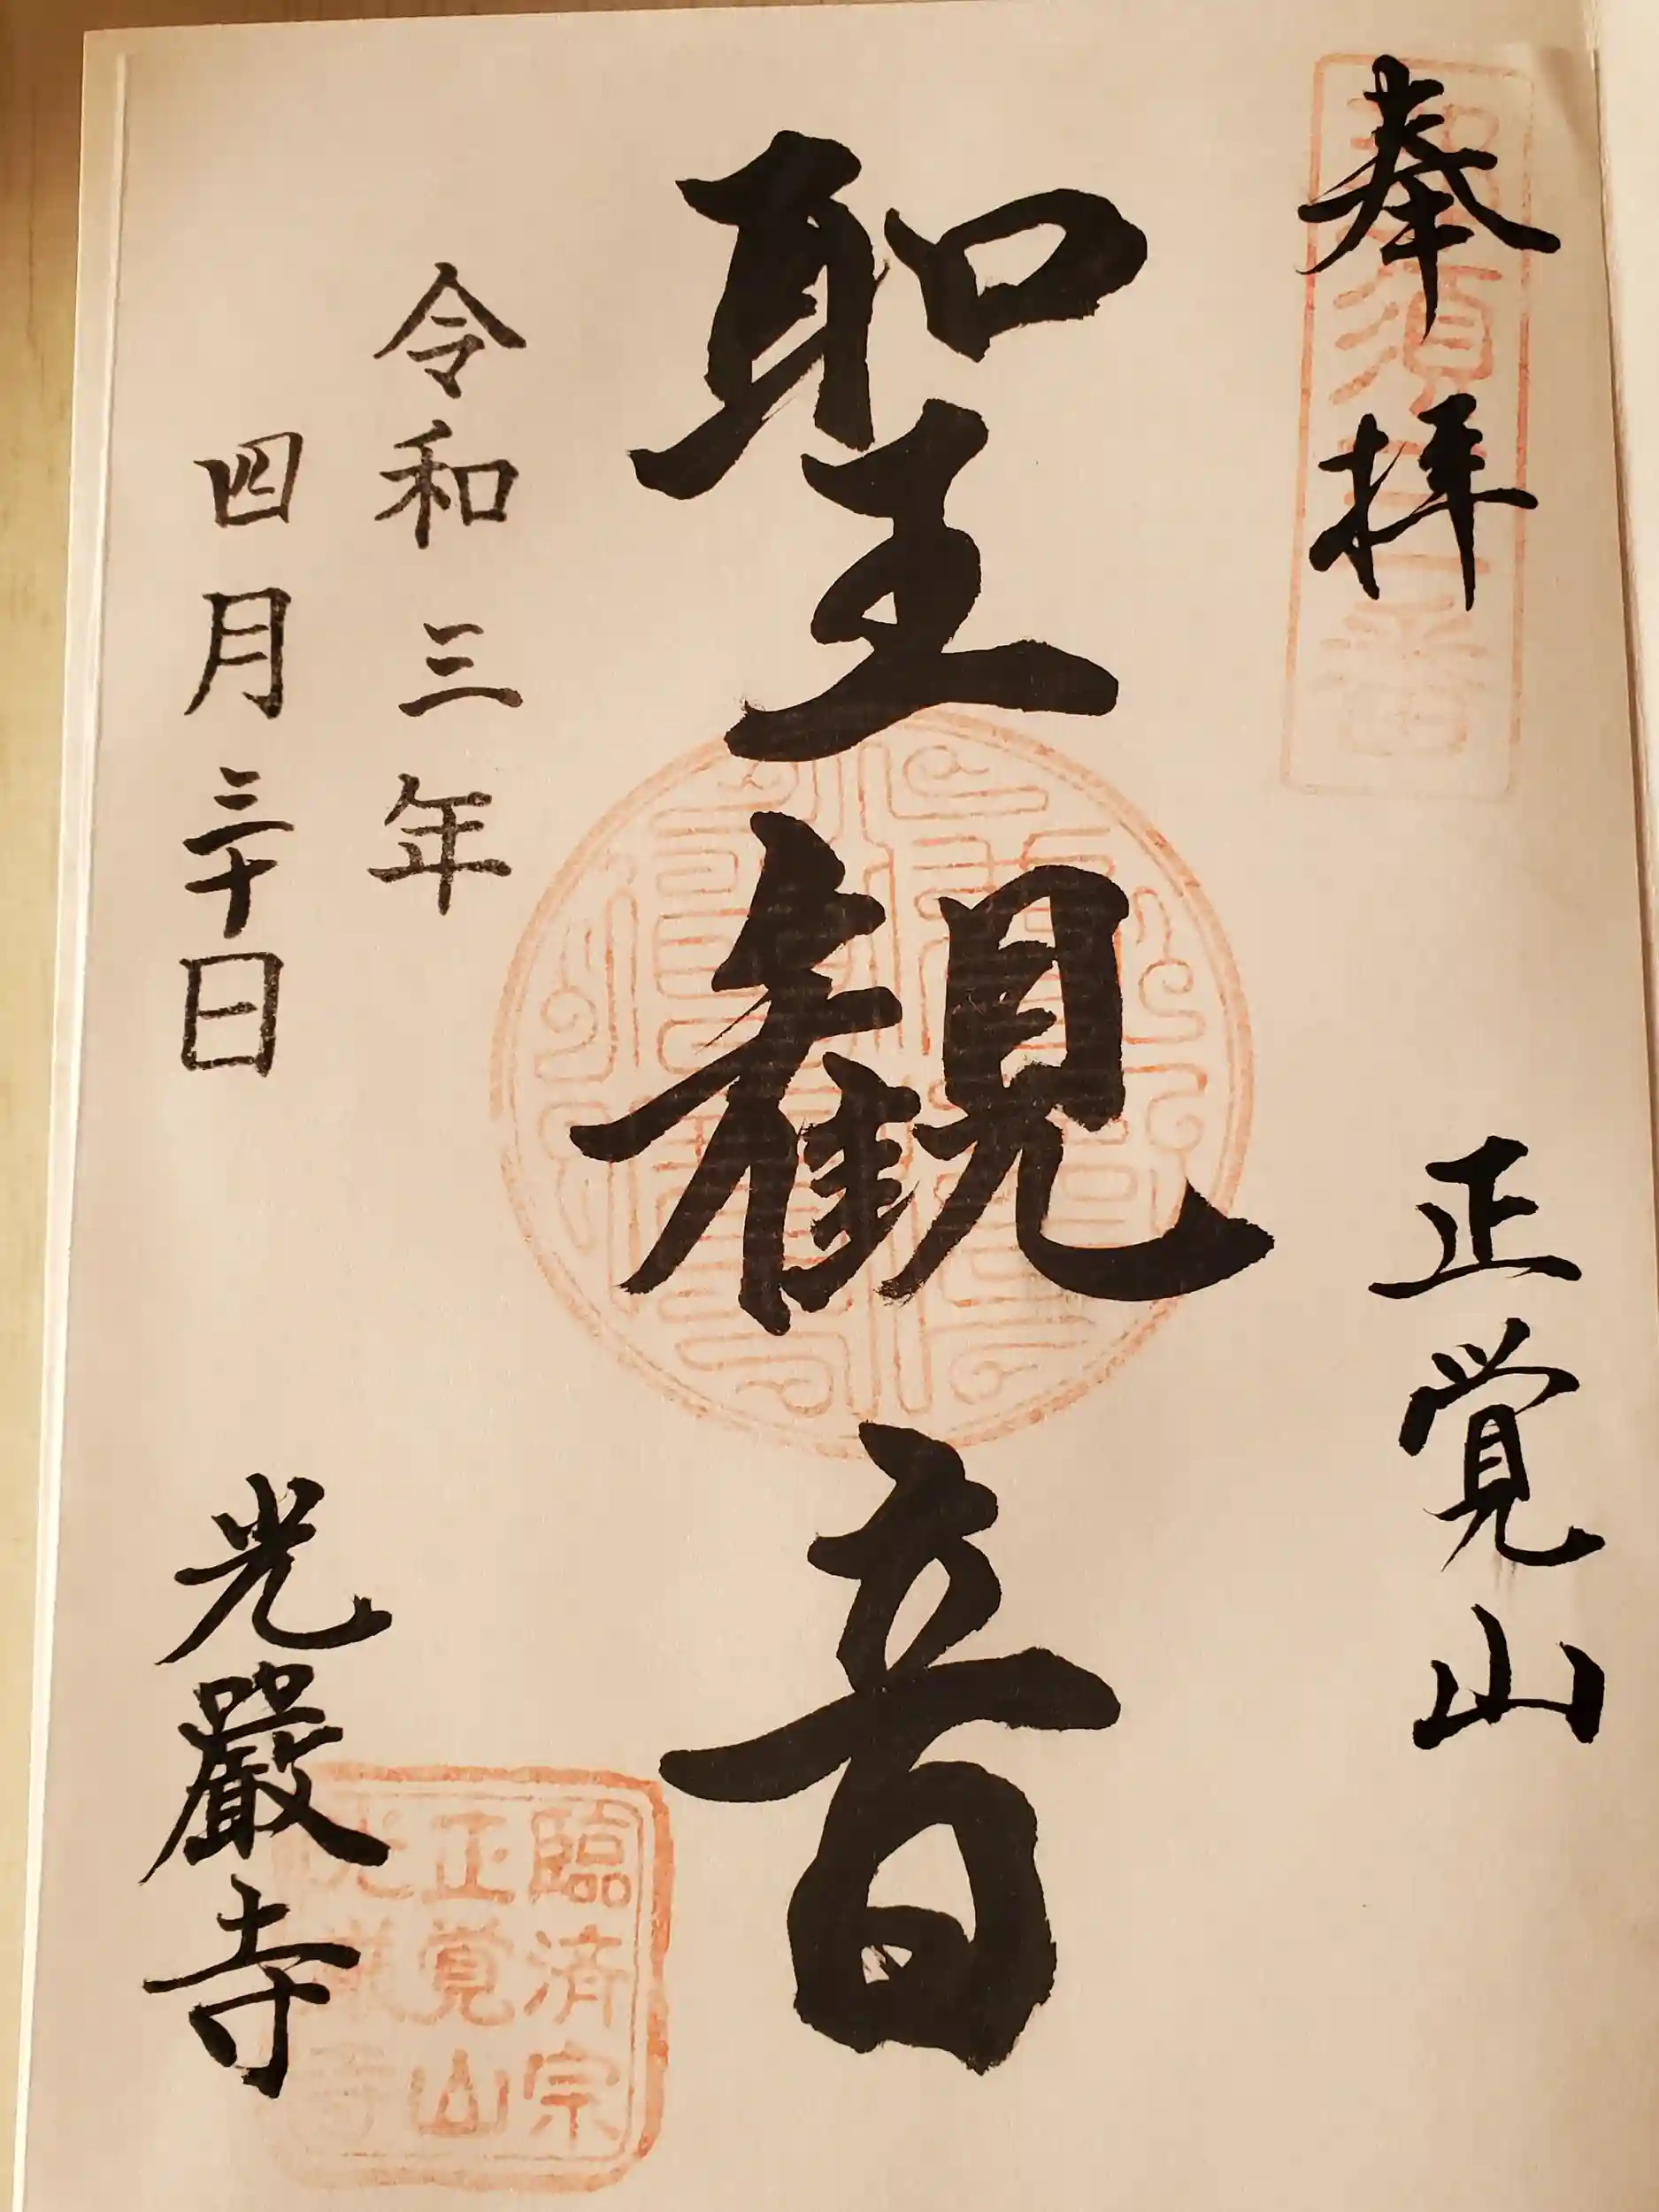 奉拝
正覚山
聖観音
令和三年
四月三十日
光嚴寺
臨済宗
正覚山
光嚴寺